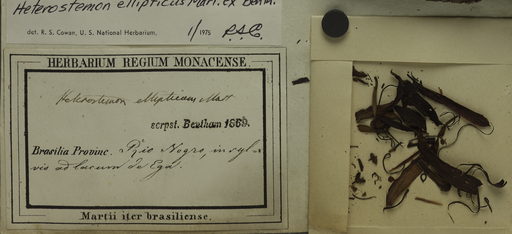 Heterostemon ellipticus Mart. ex Benth.
det. R. S. Cowan, U. S. National Herbarium, 1/1975 R.S.C.
HERBARIUM REGIUM MONACENSE.
Heterostemon ellipticum Mart
scrpst. Bentham 1869.
Brasilia Provinc. Rio Negro, in syl-
vis ad lacum de Ega.
Martii iter brasiliense.